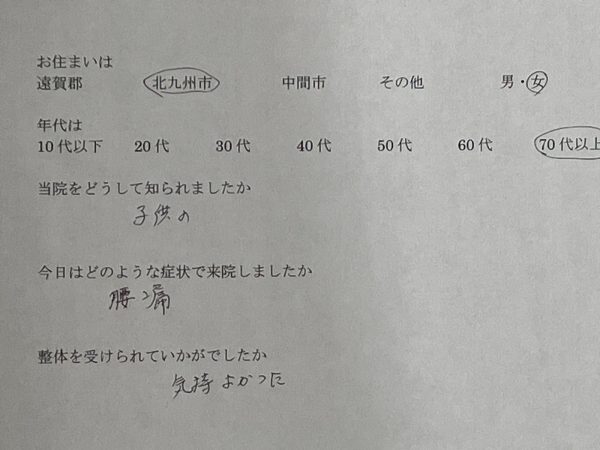 お住まいは
遠賀郡 北九州市 中間市 その他 男・女
年代は
10代以下 20代 30代 40代 50代 60代 70代以上
当院をどうして知られましたか
子供の
今日はどのような症状で来院しましたか
腰痛
整体を受けられていかがでしたか
気持よかつた